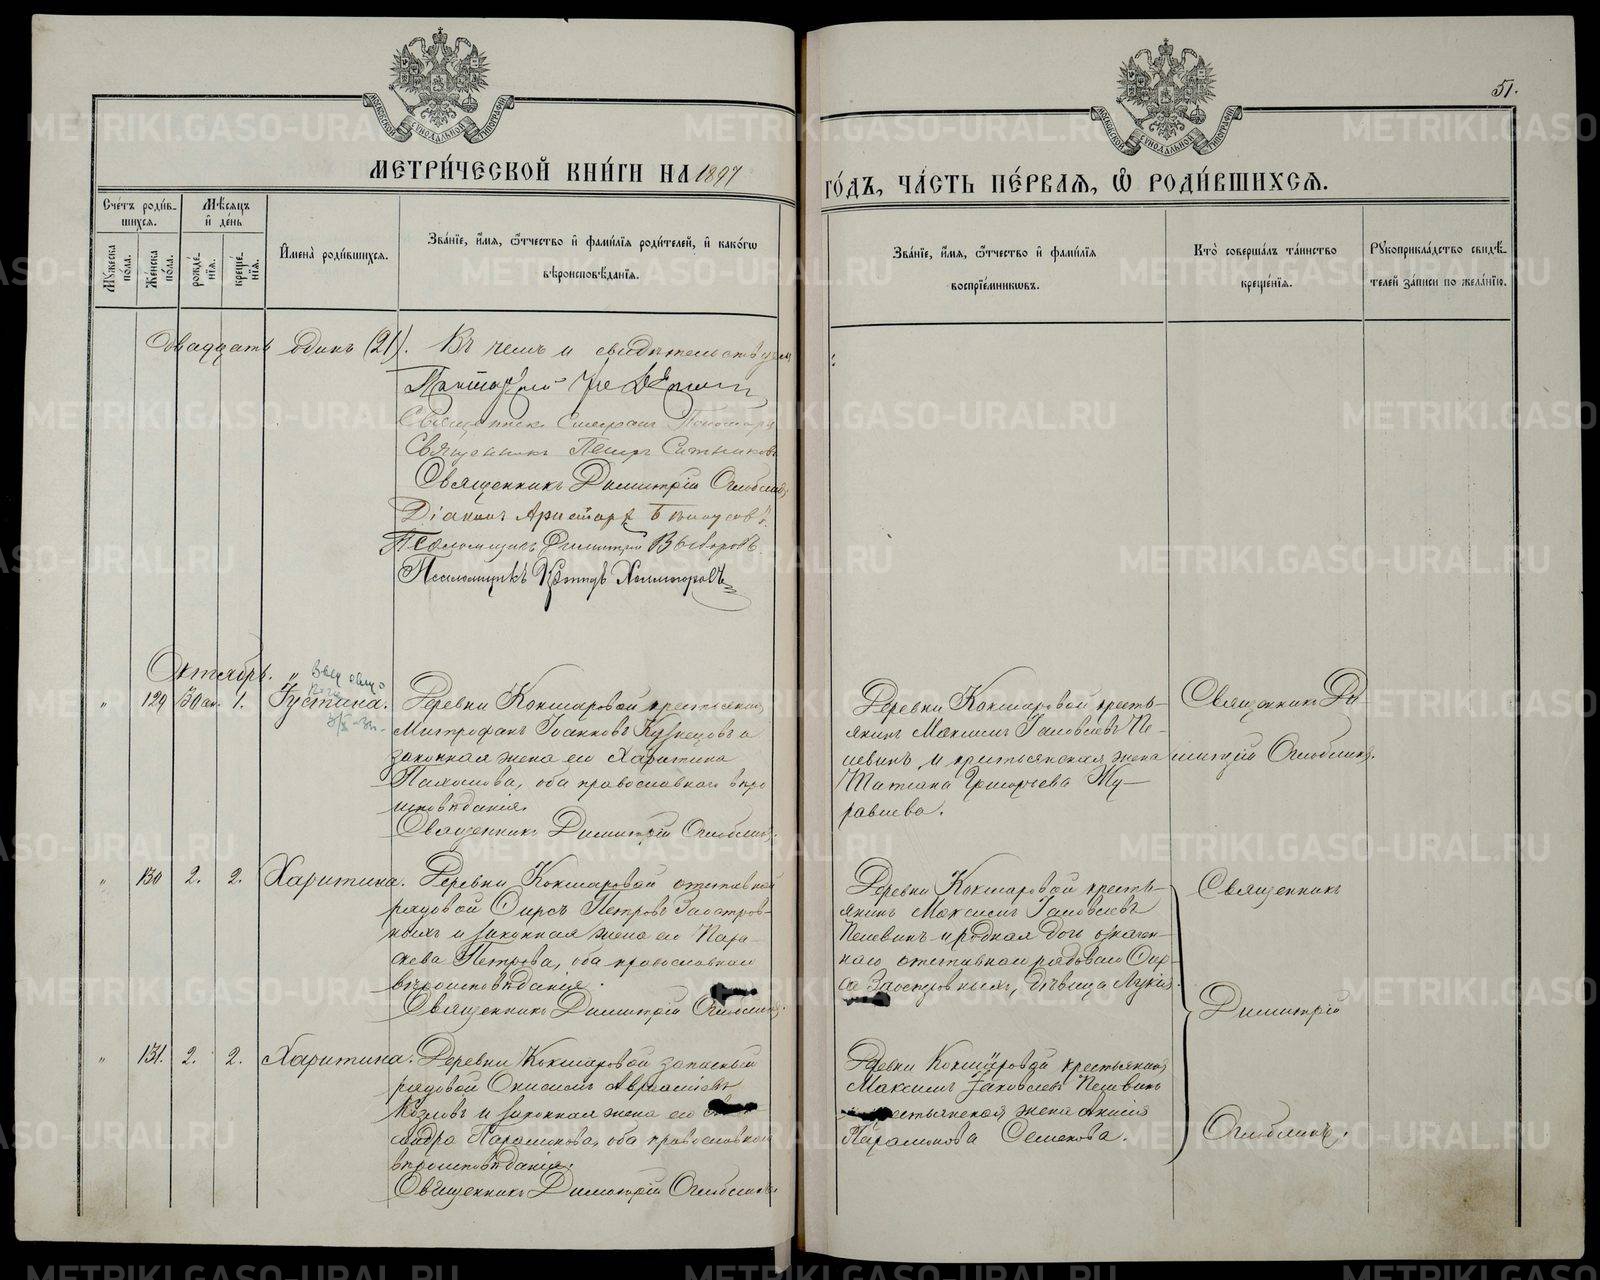 51.
МОСКОВСКОЙ СУНОДАЛЬНОЙ ТИПОГРАФІИ
МОСКОВСКОЙ СУНОДАЛЬНОЙ ТИПОГРАФІИ
МЕТРИ́ЧЕСКОЙ КНИ́ГИ НА 1897
ГО́ДЪ, ЧА́СТЬ ПЕ́РВАЯ, Ѽ РОДИ́ВШИХСѦ.
Сче́тъ роди́вшихсѧ.
Мѣ́сѧцъ и҆ де́нь
Му́жеска по́ла.
Же́нска по́ла.
рожде́нїѧ.
креще́нїѧ.
И҆мена̀ роди́вшихсѧ.
Зва́нїе, и҆́мѧ, ѻ҆́тчество и҆ фами́лїѧ роди́телей, и҆ како́гѡ
вѣроисповѣ́данїѧ.
Зва́нїе, и҆́мѧ, ѻ҆́тчество и҆ фами́лїѧ
воспрїе́мникѡвъ.
Кто̀ соверша́лъ та́инство
креще́нїѧ.
Рꙋкоприкла́дство свидѣ́телей за́писи по жела́нїю.
двадцать одинъ (21). Въ чемъ и свидѣтельствуемъ:
Священникъ Пономарев
Священникъ Петръ Ситниковъ
Священникъ Димитрій Оглоблинъ
Діаконъ Аристархъ
Псаломщикъ Димитрій Выборовъ
Псаломщикъ
Октябрь.
" 129 30 1. Іустина.
Деревни Кокшаровой крестьянинъ
Митрофанъ Іоанновъ Кузнецовъ и
законная жена его Харитина
Пахомова, оба православнаго вѣро
исповѣданія.
Священникъ Димитрій Оглоблинъ.
Деревни Кокшаровой кресть-
янинъ Максимъ Іаковлевъ Пе-
шевинъ и крестьянская жена
Татіана Григорьева Жу-
равлева.
Священникъ Ди-
митрій Оглоблинъ.
" 130 2. 2. Харитина.
Деревни Кокшаровой отставной
рядовой Сиръ Петровъ Заостров-
ныхъ и законная жена его Пара-
скева Петрова, оба православнаго
вѣроисповѣданія.
Священникъ Димитрій Оглоблинъ.
Деревни Кокшаровой кресть-
янинъ Максимъ Іаковлевъ
Пешевинъ и родная дочь означен-
наго отставнаго рядоваго Си-
ра Заостровныхъ, дѣвица Лукія.
Священникъ
Димитрій
Оглоблинъ.
" 131. 2. 2. Харитина.
Деревни Кокшаровой запасный
рядовой Онисимъ Авраамовъ
Козловъ и законная жена его
Парамонова, оба православнаго
вѣроисповѣданія.
Священникъ Димитрій Оглоблинъ
Деревни Кокшаровой крестьянинъ
Максимъ Іаковлевъ Пешевинъ
крестьянская жена Анисія
Парамонова Семенова.
METRIKI.GASO-URAL.RU